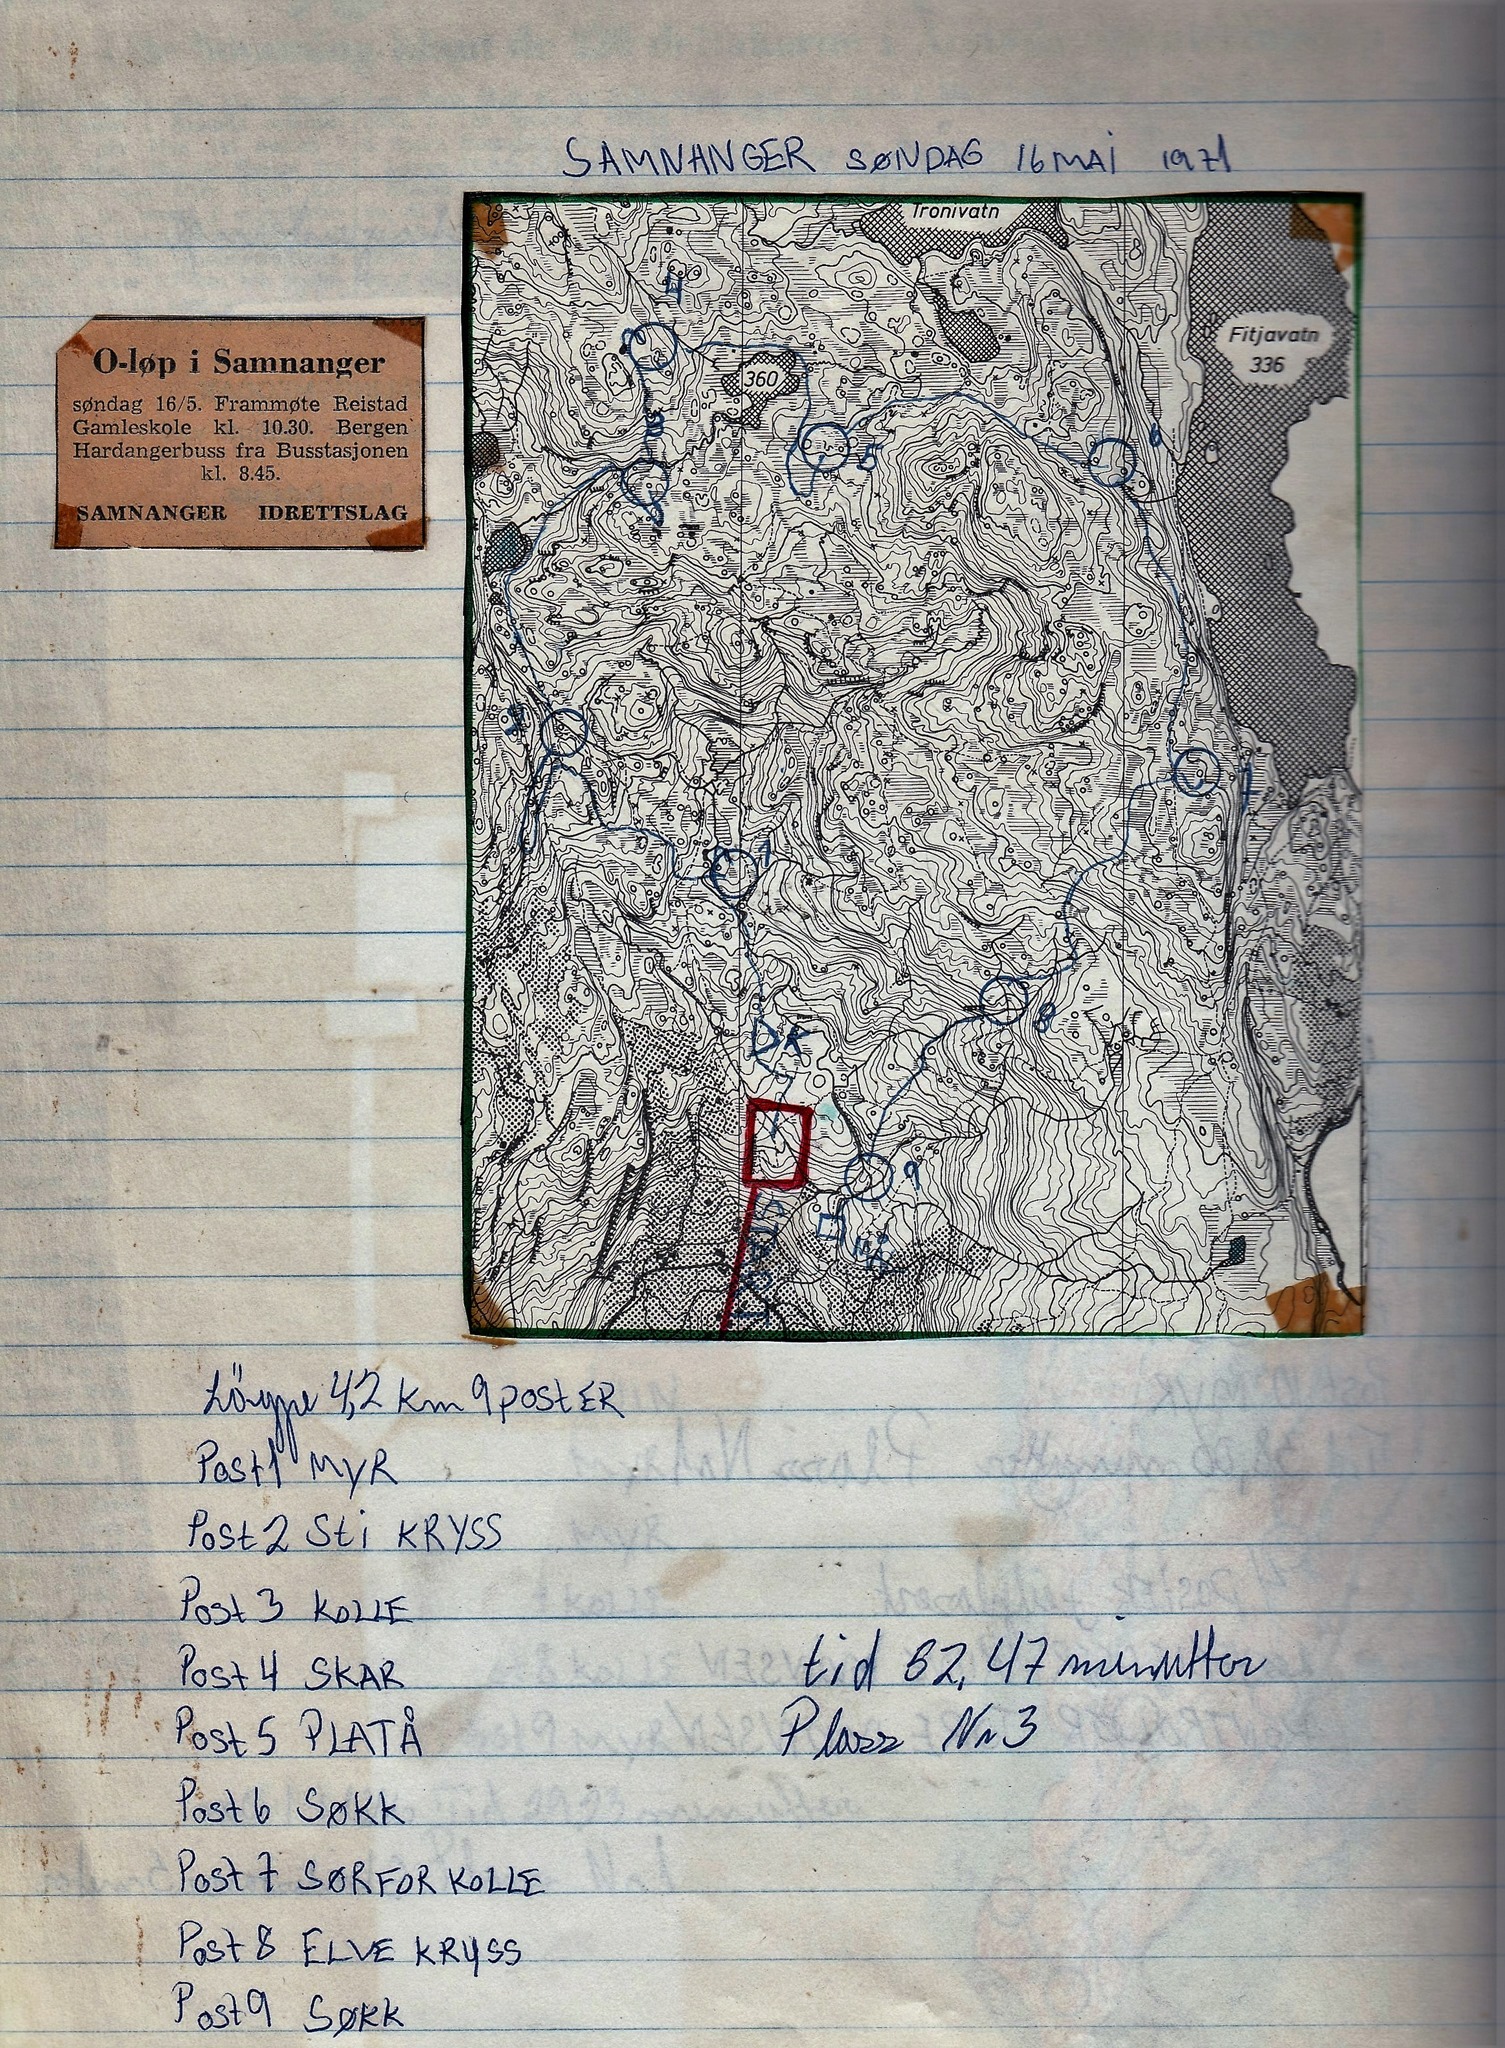 SAMNANGER SØNDAG 16 MAI 1971
O-løp i Samnanger
søndag 16/5. Frammøte Reistad
Gamleskole kl. 10.30. Bergen
Hardangerbuss fra Busstasjonen
kl. 8.45.
SAMNANGER IDRETTSLAG
Tronivatn
Fitjavatn
336
4
360
3
5
6
2
7
1
8
9
START
MÅL
Löype 4,2 km 9 postER
Post 1 MYR
Post 2 Sti KRYSS
Post 3 KOLLE
Post 4 SKAR
Post 5 PLATÅ
Post 6 SØKK
Post 7 SØR FOR KOLLE
Post 8 ELVE KRYSS
Post 9 SØKK
tid 82,47 minutter
Plass Nr 3